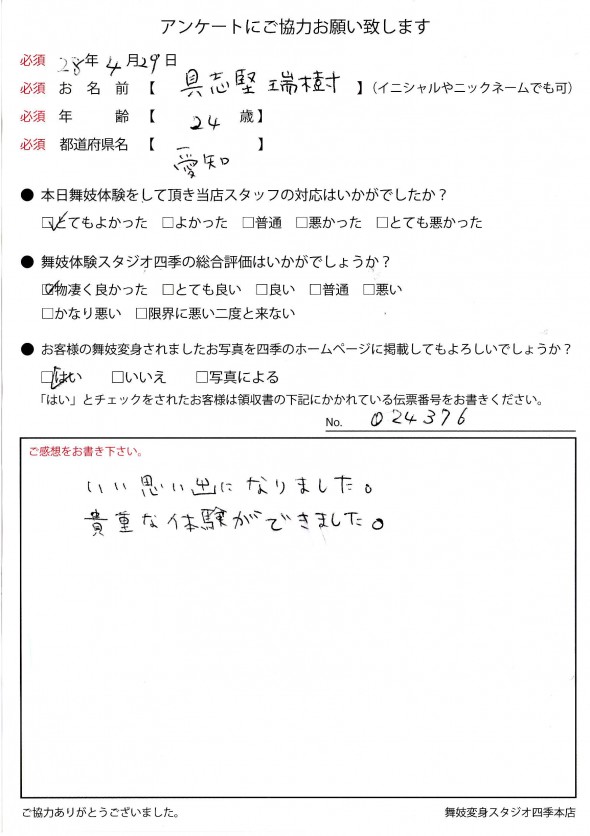 アンケートにご協力お願い致します
必須 28年4月29日
必須 お名前【 具志堅 瑞樹 】(イニシャルやニックネームでも可)
必須 年齢【 24 歳】
必須 都道府県名【 愛知 】
● 本日舞妓体験をして頂き当店スタッフの対応はいかがでしたか？
☑とてもよかった □よかった □普通 □悪かった □とても悪かった
● 舞妓体験スタジオ四季の総合評価はいかがでしょうか？
☑物凄く良かった □とても良い □良い □普通 □悪い
□かなり悪い □限界に悪い二度と来ない
● お客様の舞妓変身されましたお写真を四季のホームページに掲載してもよろしいでしょうか？
☑はい □いいえ □写真による
「はい」とチェックをされたお客様は領収書の下記にかかれている伝票番号をお書きください。
No. 024376
ご感想をお書き下さい。
いい思い出になりました。
貴重な体験ができました。
ご協力ありがとうございました。
舞妓変身スタジオ四季本店